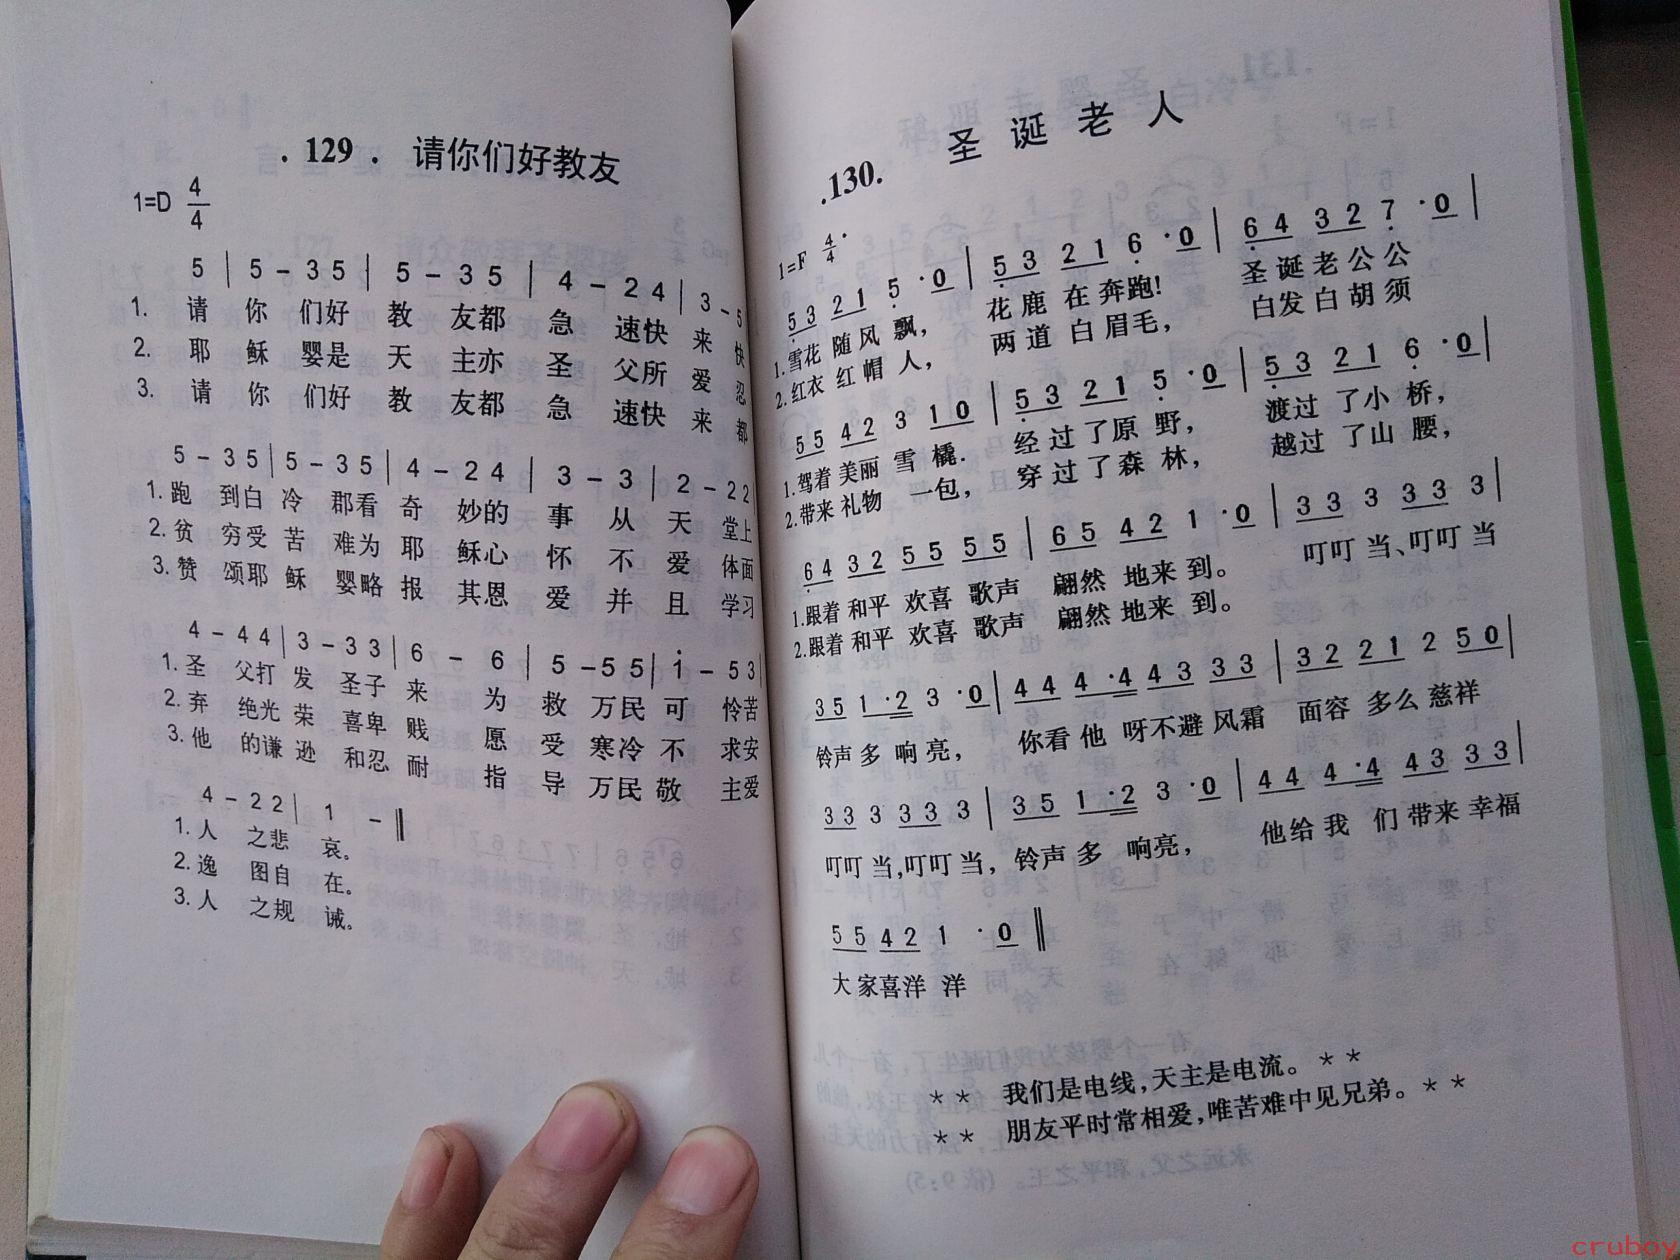 . 129 . 请你们好教友
1=D 4/4
5 | 5 – 3 5 | 5 – 3 5 | 4 – 2 4 | 3 – 5
1. 请 你 们好 教 友都 急 速快 来 快
2. 耶 稣 婴是 天 主亦 圣 父所 爱 忍
3. 请 你 们好 教 友都 急 速快 来 都
5 – 3 5 | 5 – 3 5 | 4 – 2 4 | 3 – 3 | 2 – 2 2
1. 跑 到白 冷 郡看 奇 妙的 事 从 天 堂上
2. 贫 穷受 苦 难为 耶 稣心 怀 不 爱 体面
3. 赞 颂耶 稣 婴略 报 其恩 爱 并 且 学习
4 – 4 4 | 3 – 3 3 | 6 – 6 | 5 – 5 5 | i – 5 3
1. 圣 父打 发 圣子 来 为 救 万民 可 怜苦
2. 弃 绝光 荣 喜卑 贱 愿 受 寒冷 不 求安
3. 他 的谦 逊 和忍 耐 指 导 万民 敬 主爱
4 – 2 2 | 1 – ‖
1. 人 之悲 哀。
2. 逸 图自 在。
3. 人 之规 诫。
.130. 圣诞老人
1=F 4/4
5 3 2 1 5 · 0 | 5 3 2 1 6 · 0 | 6 4 3 2 7 · 0 |
1. 雪花 随风 飘, 花鹿 在奔跑! 圣诞老公公
2. 红衣 红帽 人, 两道 白眉毛, 白发白胡须
5 5 4 2 3 1 0 | 5 3 2 1 5 · 0 | 5 3 2 1 6 · 0 |
1. 驾着 美丽 雪 橇. 经过了原 野, 渡过 了小 桥,
2. 带来 礼物 一包, 穿过了森 林, 越过 了山 腰,
6 4 3 2 5 5 5 5 | 6 5 4 2 1 · 0 | 3 3 3 3 3 3 |
1. 跟着 和平 欢喜 歌声 翩然 地来 到。 叮叮 当、叮叮 当
2. 跟着 和平 欢喜 歌声 翩然 地来 到。
3 5 1 · 2 3 · 0 | 4 4 4 · 4 4 3 3 3 | 3 2 2 1 2 5 0 |
铃声多 响亮, 你看 他 呀不避 风霜 面容 多么 慈祥
3 3 3 3 3 3 | 3 5 1 · 2 3 · 0 | 4 4 4 · 4 4 3 3 3 |
叮叮 当,叮叮 当, 铃声多 响亮, 他给 我 们 带来 幸福
5 5 4 2 1 · 0 ‖
大家喜洋 洋
** 我们是电线,天主是电流。**
** 朋友平时常相爱,唯苦难中见兄弟。**
cruboy